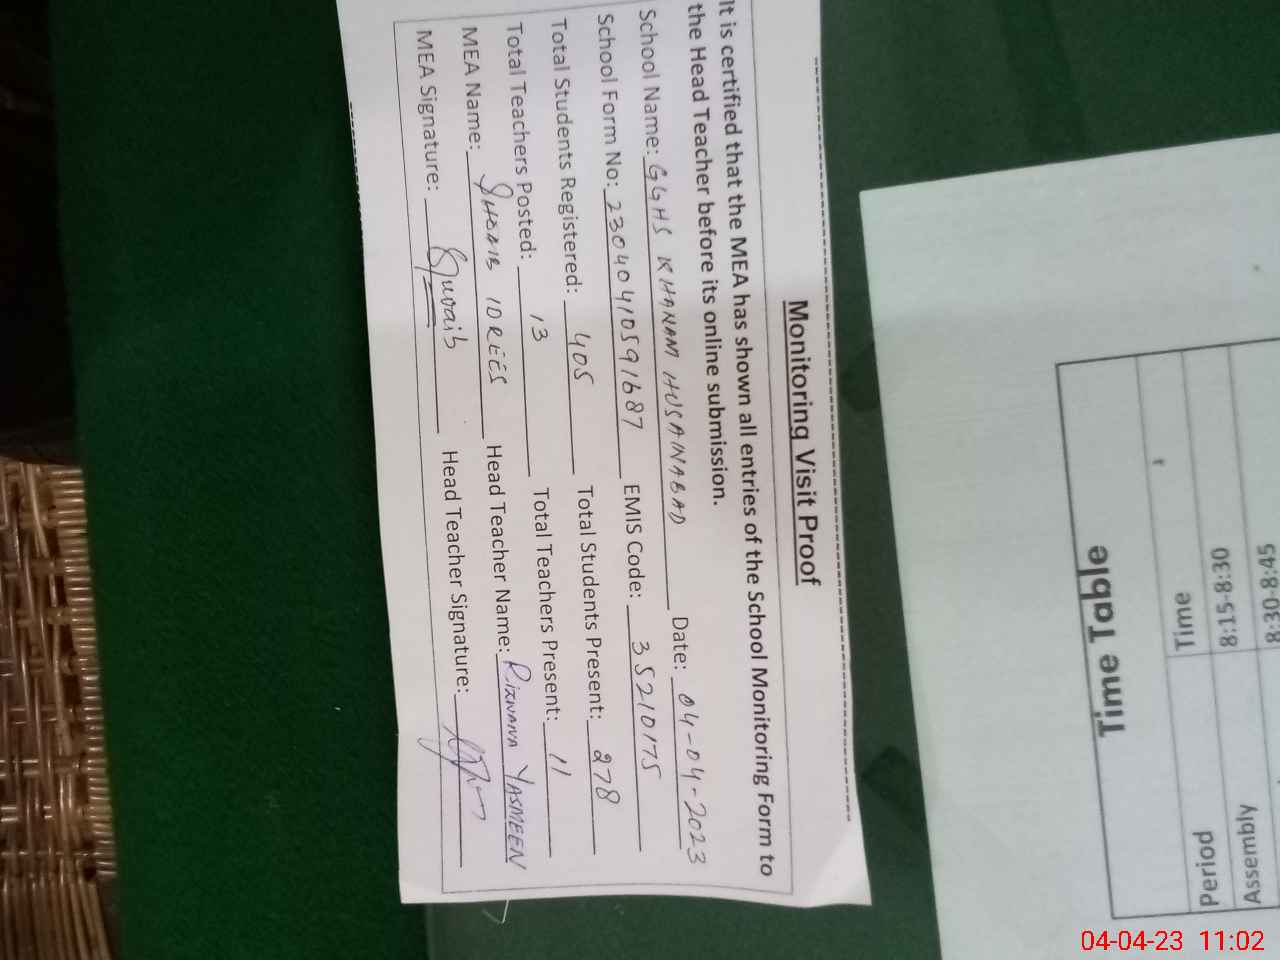 Monitoring Visit Proof
It is certified that the MEA has shown all entries of the School Monitoring Form to
the Head Teacher before its online submission.
School Name: GGHS KHANAM HUSAINABAD Date: 04-04-2023
School Form No: 23040410591687 EMIS Code: 35210175
Total Students Registered: 405 Total Students Present: 278
Total Teachers Posted: 13 Total Teachers Present: 11
MEA Name: SHOAIB IDREES Head Teacher Name: RIZWANA YASMEEN
MEA Signature: Shoaib Head Teacher Signature:
Time Table
Period Time
Assembly 8:15-8:30
8:30-8:45
04-04-23 11:02